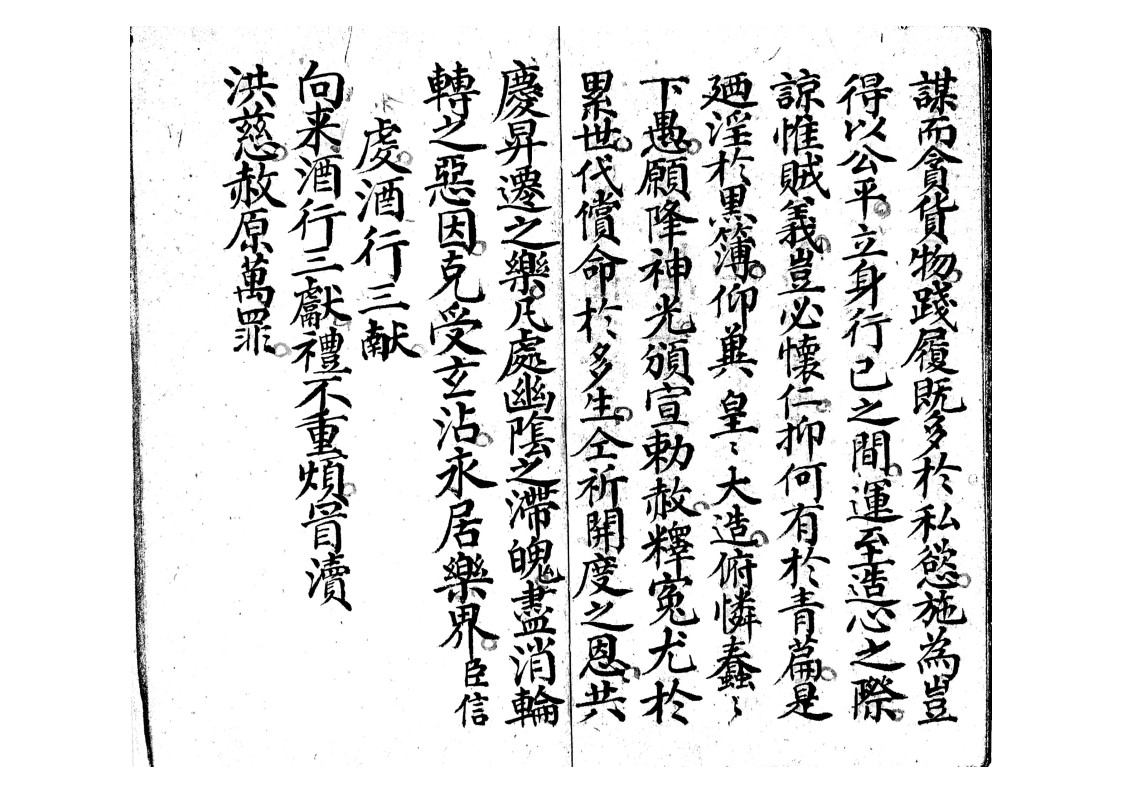 謀而貪貨物踐履既多於私慾施為豈
得以公平立身行己之間運至造心之際
諒惟賊義豈必懷仁抑何有於青篇是
廼淫於黒簿仰兾皇〻大造俯憐蠢〻
下愚願降神光頒宣勅赦釋寃尤於
累世代償命於多生仝祈開度之恩共
慶昇遷之樂凡處幽陰之滯魄盡消輪
轉之惡因克受玄沾永居樂界臣信
虔酒行三献
向来酒行三獻禮不重煩冒瀆
洪慈赦原萬罪